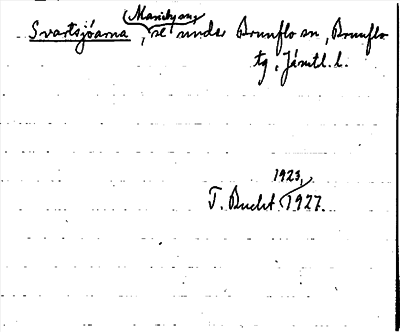 Svartsjöarna, se under Brunflo sn, Brunflo
tg, Jämtl. l.
1923,
T. Bucht. 1927.